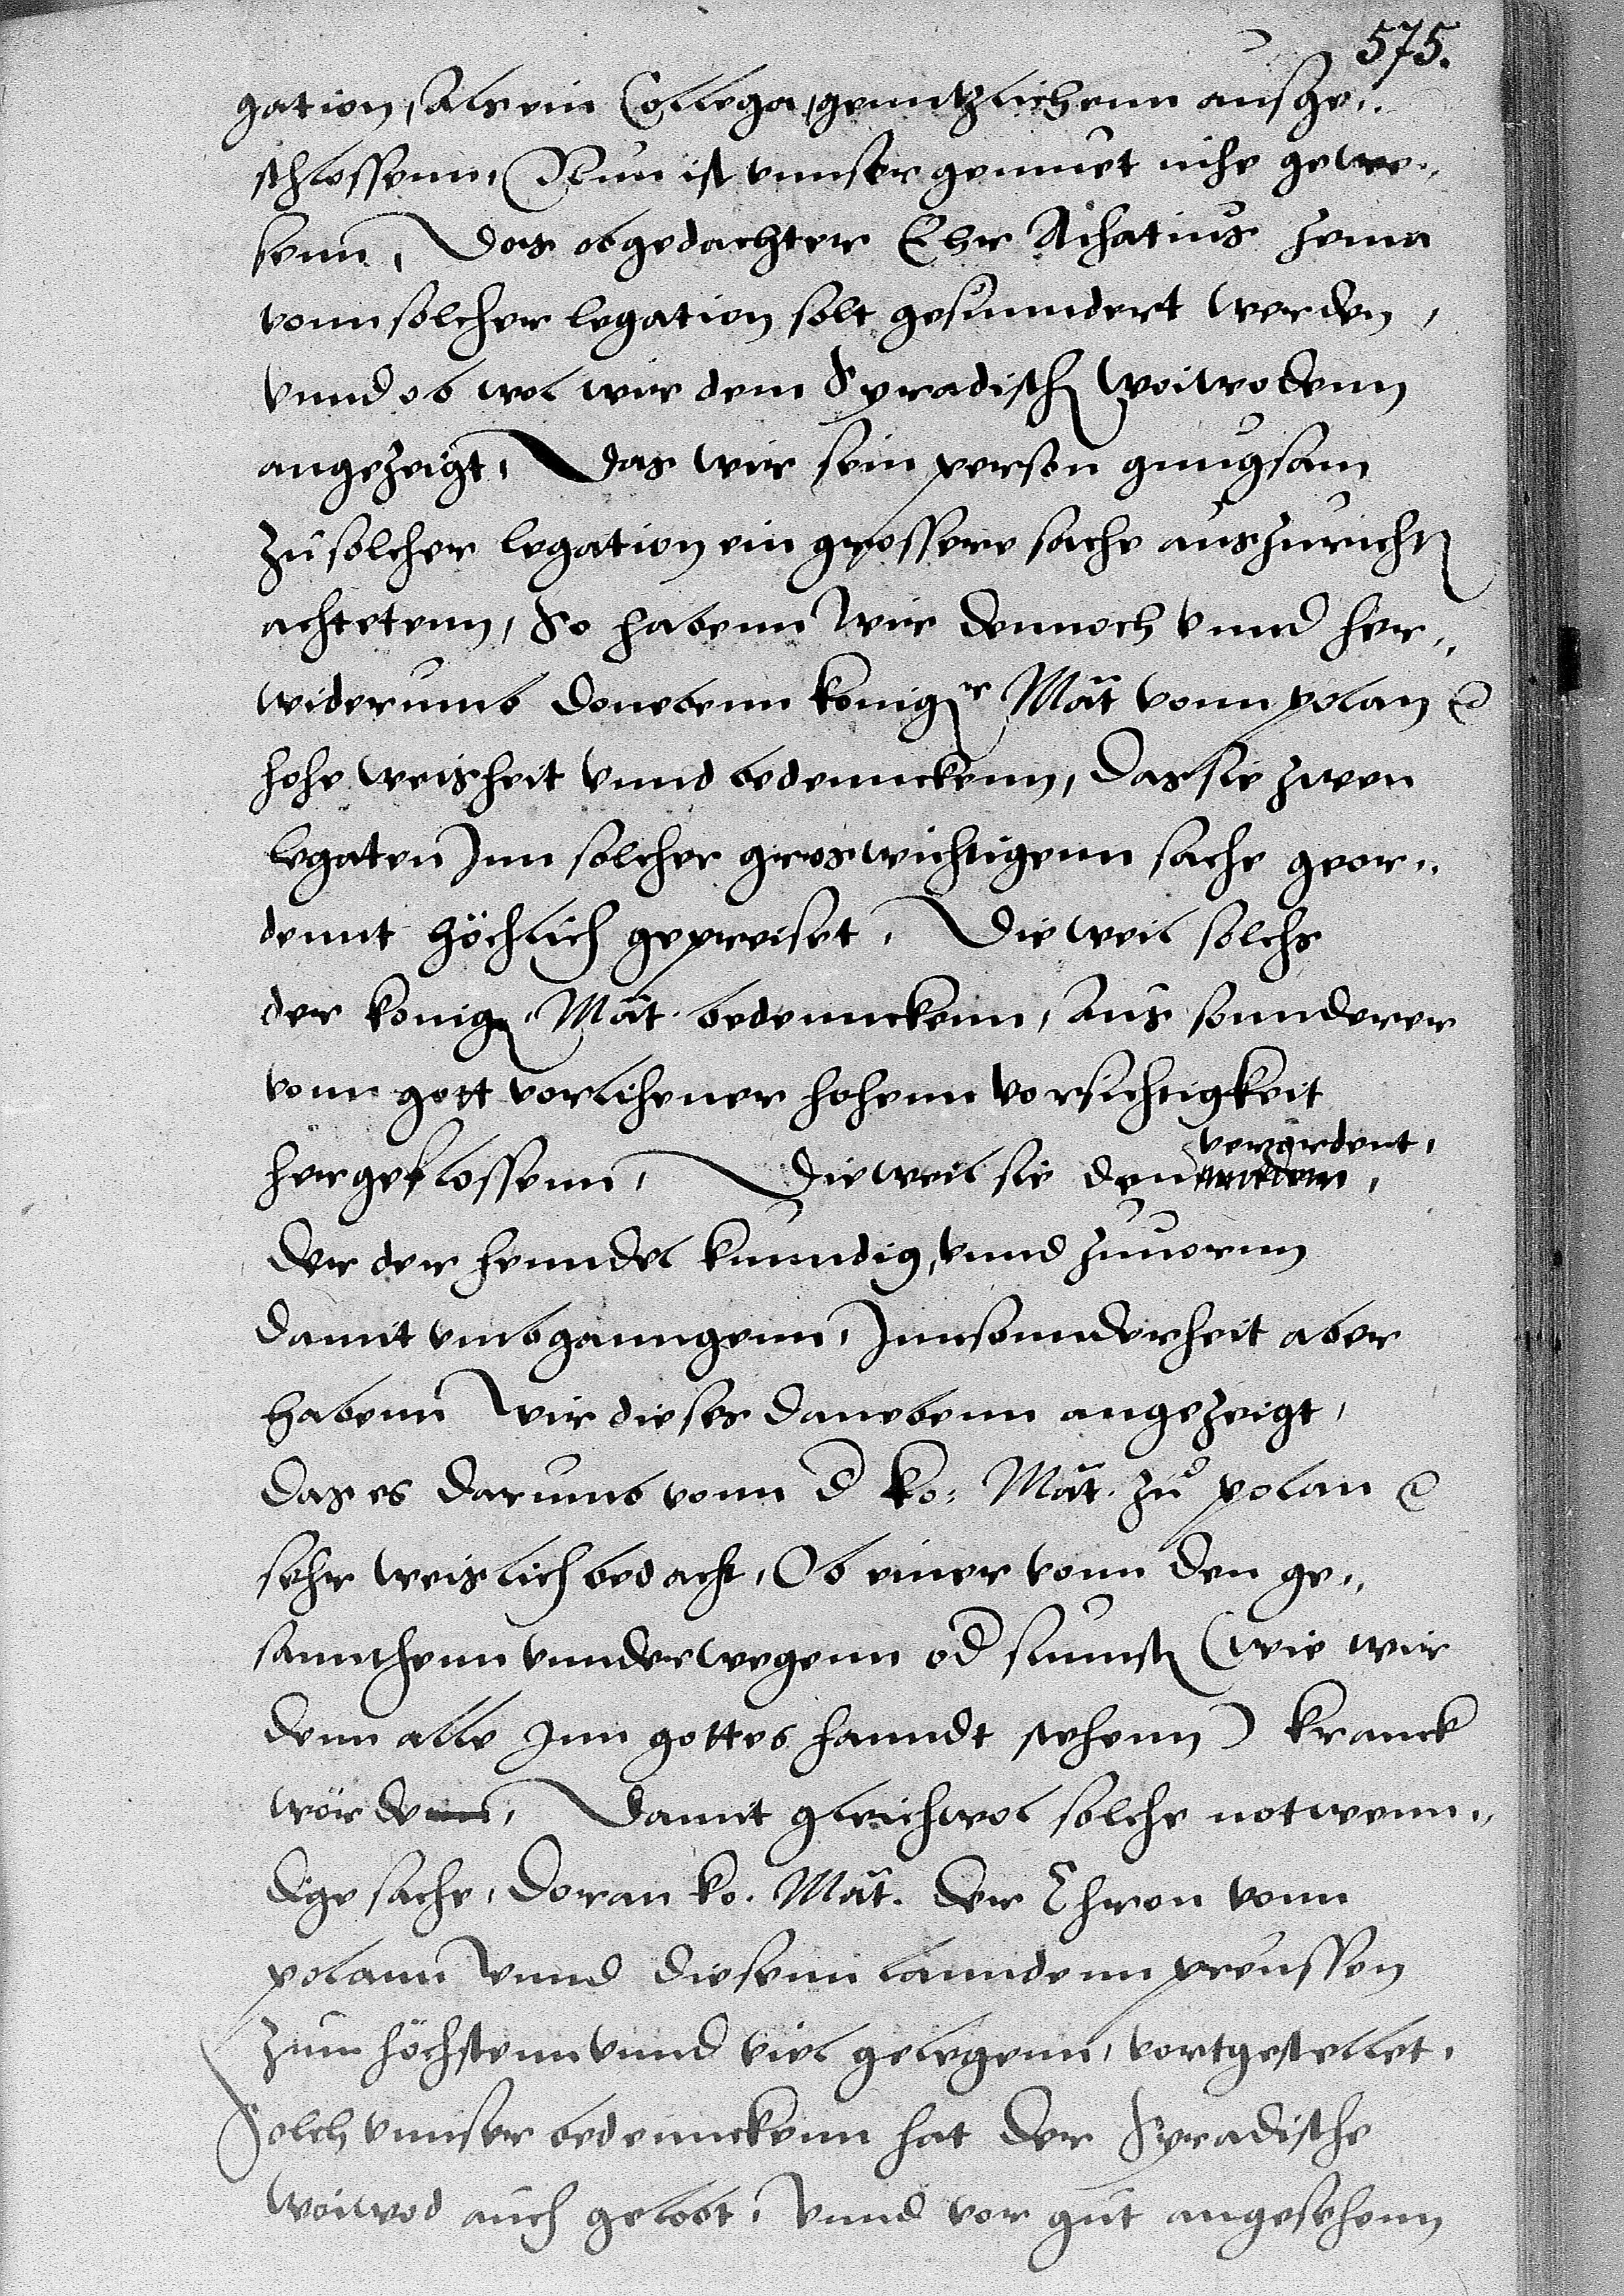 575.
gation, als ein Collega, genntzlichenn ausge„
schlossenn, Nun ist vnnser gemuet nihe gewe„
senn, Das obgedachter Ehr Achatius Zema
vonn solcher legation solt gesunndert werden,
vnnd ob wol wir dem Syradischen woiwodenn
angezeigt, Das wir sein person gnugsam
zu solcher legation ein grossere sache auszurichten
achtetenn, So habenn wir dennoch vnnd her„
widerumb donebenn konigr Mat vonn polan etc
hohe weisheit vnnd bedennckenn, Das sie zwen
legaten Inn solcher groswichtigenn sache geor„
dennt höchlich gepreiset, Die weil solchs
der konign Mat. bedennckenn, Aus sonnderer
vonn gott vorlihener hohenn vorsichtigkeit
hergeflossenn, Die weil sie den verordent,
Der der henndel kunndig, vnnd zuuornn
Damit vmbganngenn, Innsonnderheit aber
habenn wir dieses Danebenn angezeigt,
Das es darumb vonn d ko: Mat. zu polan etc
sehr weislich bedacht, Ob einer vonn den ge„
sannthenn vnnderwegenn od sunnst (wie wir
denn alle Inn gottes hanndt stehenn) kranck
wörde, Damit gleichwol solche notwenn„
dige sache, Doran ko. Mat. Der Chron vonn
polann vnnd diesenn lanndenn preussen
zum höchstenn vnnd viel gelegenn, vortgestellet,
Solch vnnser bedennckenn hat der Syradische
woiwod auch gelobt, vnnd vor gut angesehenn